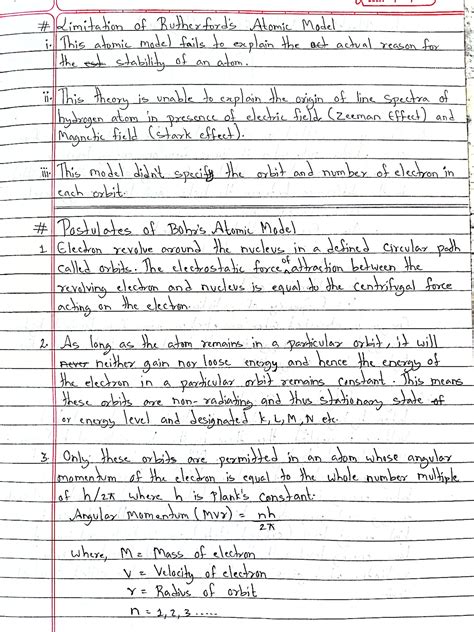 # Limitation of Rutherford's Atomic Model
i. This atomic model fails to explain the act actual reason for
the est stability of an atom.
ii. This theory is unable to explain the origin of line spectra of
hydrogen atom in presence of electric field (Zeeman Effect) and
Magnetic field (Stark effect).
iii. This model didn't specify the orbit and number of electron in
each orbit.
# Postulates of Bohr's Atomic Model
1. Electron revolve around the nucleus in a defined circular path
called orbits. The electrostatic force of attraction between the
revolving electron and nucleus is equal to the centrifugal force
acting on the electron.
2. As long as the atom remains in a particular orbit, it will
Never neither gain nor loose energy and hence the energy of
the electron in a particular orbit remains constant. This means
these orbits are non-radiating and thus stationary state of
or energy level and designated K, L, M, N etc.
3. Only these orbits are permitted in an atom whose angular
momentum of the electron is equal to the whole number multiple
of h/2π where h is Plank's constant.
Angular Momentum (MVr) = nh
2π
where, M = Mass of electron
V = Velocity of electron
r = Radius of orbit
n = 1, 2, 3 .....